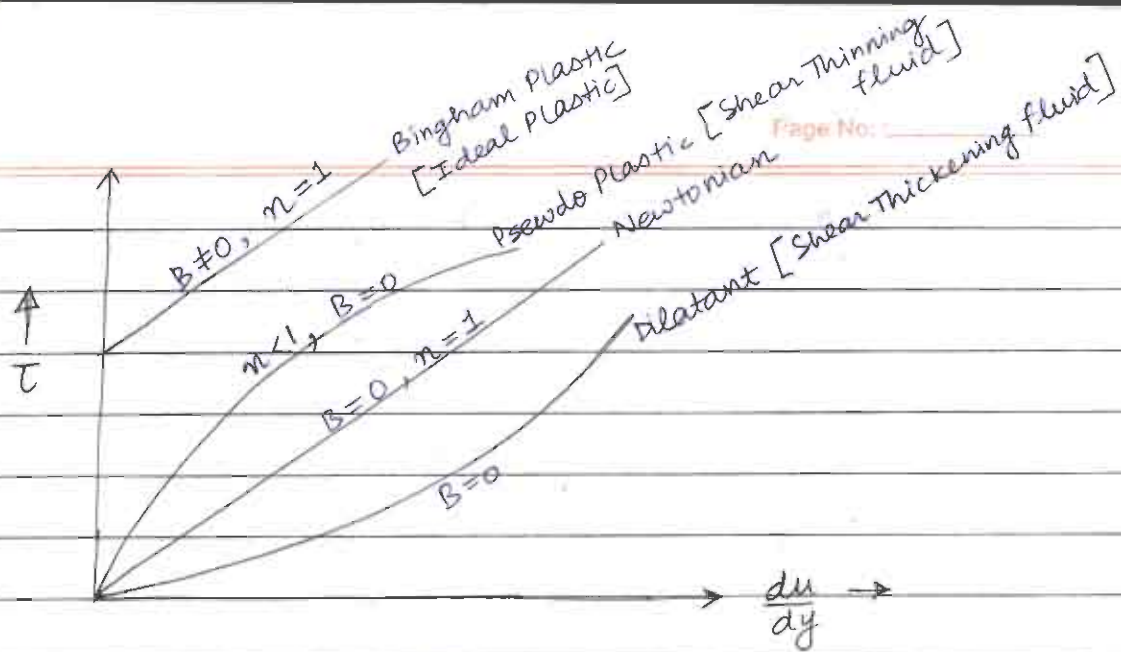 Page No:
B≠0, n=1 Bingham Plastic
[Ideal Plastic]
n<1, B=0 Pseudo Plastic [Shear Thinning
fluid]
B=0, n=1 Newtonian
B=0 Dilatant [Shear Thickening fluid]
τ
du/dy →